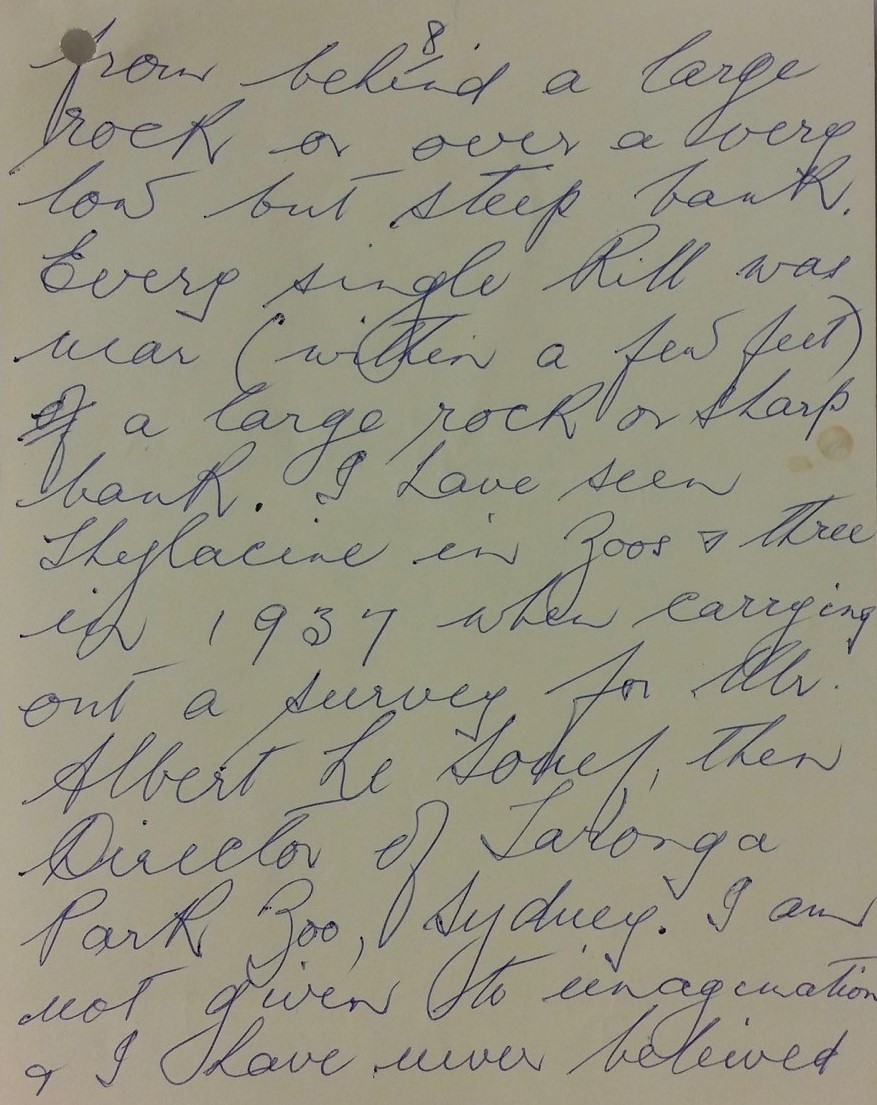 8.
from behind a large
rock or over a very
low but steep bank.
Every single kill was
near (within a few feet)
of a large rock or sharp
bank. I have seen
Thylacine in Zoos & three
in 1937 when carrying
out a survey for Mr.
Albert Le Souef, then
Director of Taronga
Park Zoo, Sydney. I am
not given to imagination
& I have never beleived